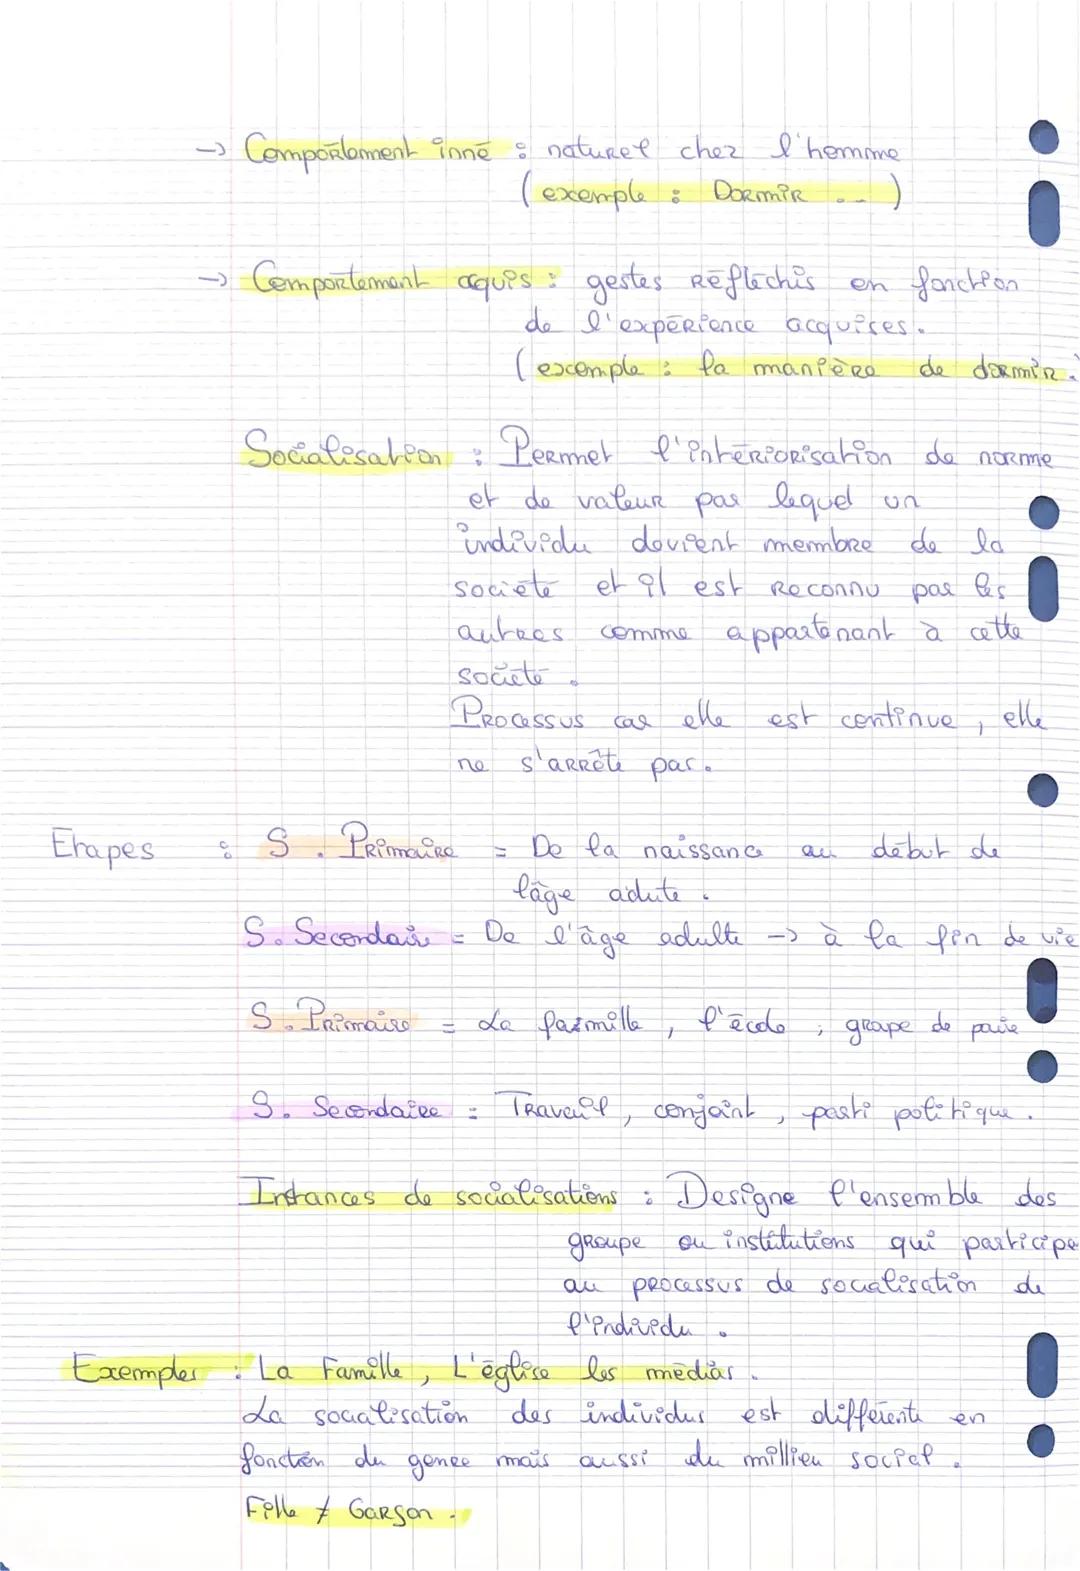 -> Comportement inné : naturel chez l'homme
( exemple : Dormir ... )
-> Comportement aquis : gestes réfléchis en fonction
de l'expérience acquises.
( exemple : la manière de dormir.)
Socialisation : Permet l'intériorisation de norme
et de valeur par lequel un
individu devient membre de la
société et il est reconnu par les
autres comme appartenant à cette
société.
Processus car elle est continue, elle
ne s'arrête pas.
Etapes : S. Primaire = De la naissance au début de
l'âge adute.
S. Secondaire = De l'âge adulte -> à la fin de vie
S. Primaire = La faimille, l'école ; grape de paire
S. Secondaire = Travail, conjoint, parti politique.
Instances de socialisations : Designe l'ensemble des
groupe ou institutions qui participe
au processus de socialisation de
l'individu.
Exemples : La Famille, L'église les médias.
La socialisation des individus est différente en
fonction du genre mais aussi du millieu social.
Fille ≠ Garson.